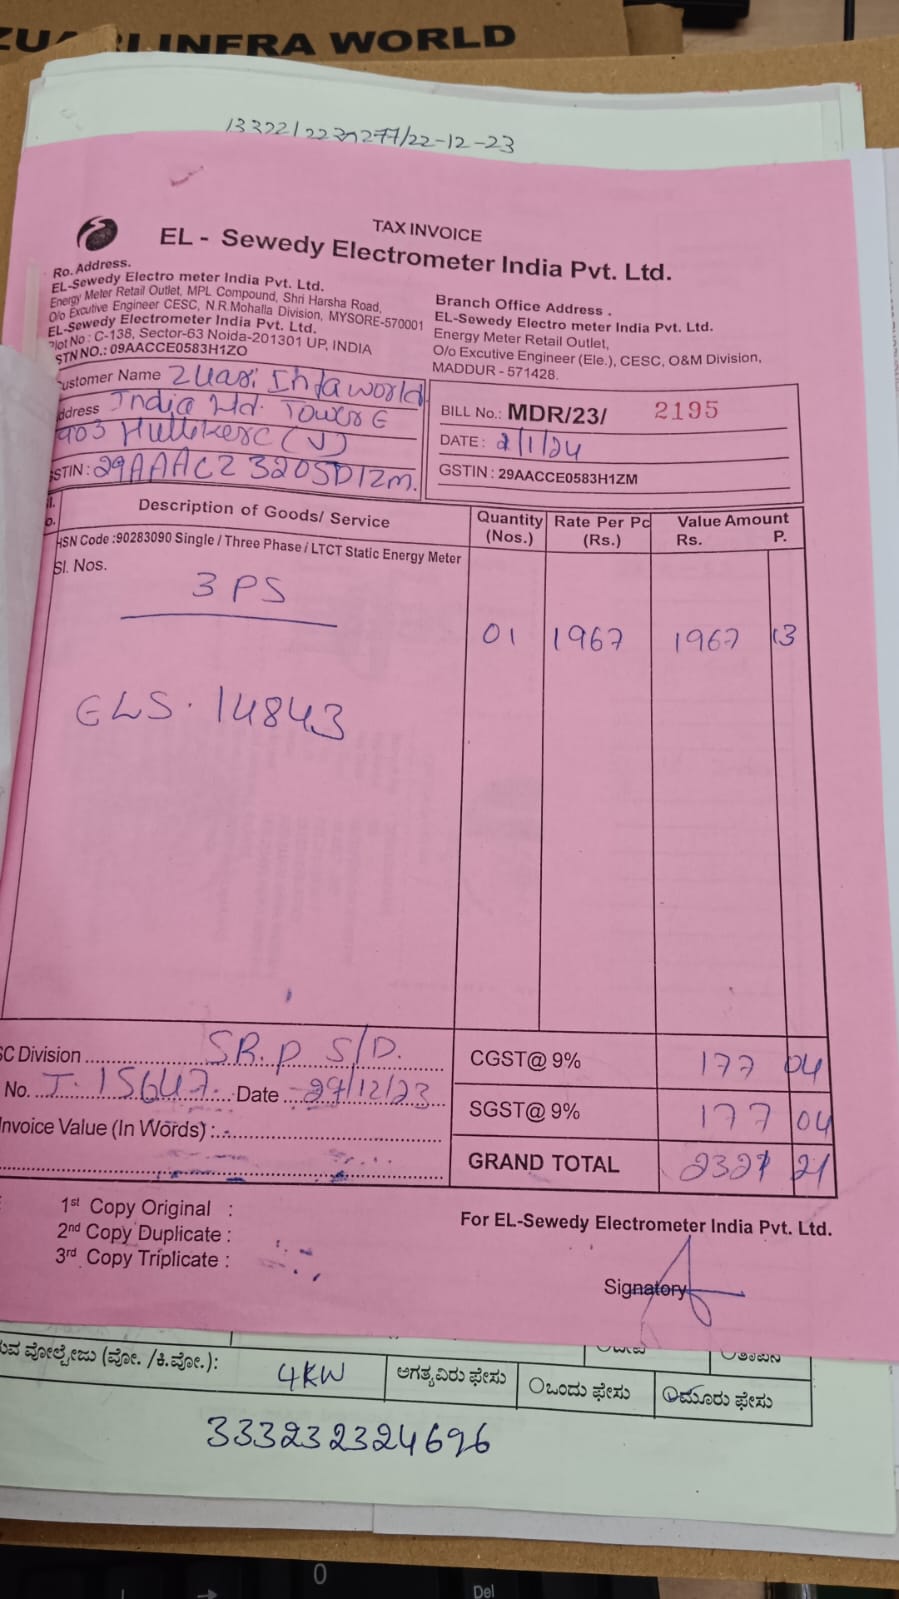 INFRA WORLD
13322/2230277/22-12-23
TAX INVOICE
EL - Sewedy Electrometer India Pvt. Ltd.
Ro. Address.
EL-Sewedy Electro meter India Pvt. Ltd.
Energy Meter Retail Outlet, MPL Compound, Shri Harsha Road,
O/o Excutive Engineer CESC, N.R.Mohalla Division, MYSORE-570001
EL-Sewedy Electrometer India Pvt. Ltd.
Plot No : C-138, Sector-63 Noida-201301 UP, INDIA
STN NO.: 09AACCE0583H1ZO
Branch Office Address .
EL-Sewedy Electro meter India Pvt. Ltd.
Energy Meter Retail Outlet,
O/o Excutive Engineer (Ele.), CESC, O&M Division,
MADDUR - 571428.
ustomer Name Zuari Infaworld
ddress India Ltd. Tower E
903 Hullikere (V)
STIN : 29AAACZ3205D1ZM.
BILL No.: MDR/23/ 2195
DATE : 2/1/24
GSTIN : 29AACCE0583H1ZM
Description of Goods/ Service Quantity (Nos.) Rate Per Pc (Rs.) Value Amount Rs. P.
HSN Code :90283090 Single / Three Phase / LTCT Static Energy Meter
Sl. Nos.
3 PS
01 1967 1967 13
ELS. 14843
SC Division SR.P S/D. CGST@ 9% 177 04
No. T. 15647. Date 27/12/23
SGST@ 9% 177 04
Invoice Value (In Words) :
GRAND TOTAL 2321 21
1st Copy Original :
2nd Copy Duplicate :
3rd Copy Triplicate :
For EL-Sewedy Electrometer India Pvt. Ltd.
Signatory
ವೋಲ್ಟೇಜು (ವೋ. /ಕಿ.ವೋ.): 4KW ಅಗತ್ಯವಿರು ಫೇಸು ಒಂದು ಫೇಸು ಮೂರು ಫೇಸು
333232324696
0
Del